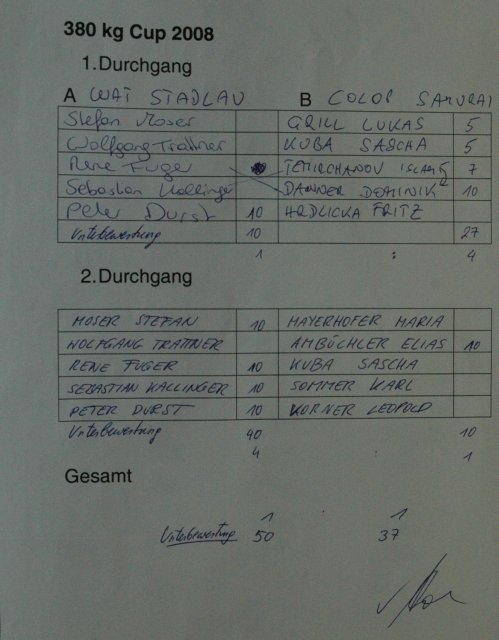 380 kg Cup 2008
1.Durchgang
A WAT STADLAU B COLOP SAMURAI
Stefan Moser GRILL LUKAS 5
Wolfgang Trattner KUBA SASCHA 5
Rene Fuger TEMIRCHANOV ISLAM 7
Sebastian Kallinger DANNER DOMINIK 10
Peter Durst 10 HRDLICKA FRITZ
Unterbewertung 10 27
1 : 4
2.Durchgang
MOSER STEFAN 10 MAYERHOFER MARIA
WOLFGANG TRATTNER AMBÜCHLER ELIAS 10
RENE FUGER 10 KUBA SASCHA
SEBASTIAN KALLINGER 10 SOMMER KARL
PETER DURST 10 KORNER LEOPOLD
Unterbewertung 40 10
4 : 1
Gesamt
1 : 1
Unterbewertung 50 37